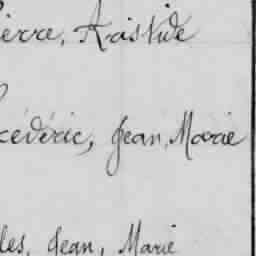 ierre, Aristide
rédéric, Jean, Marie
les, Jean, Marie